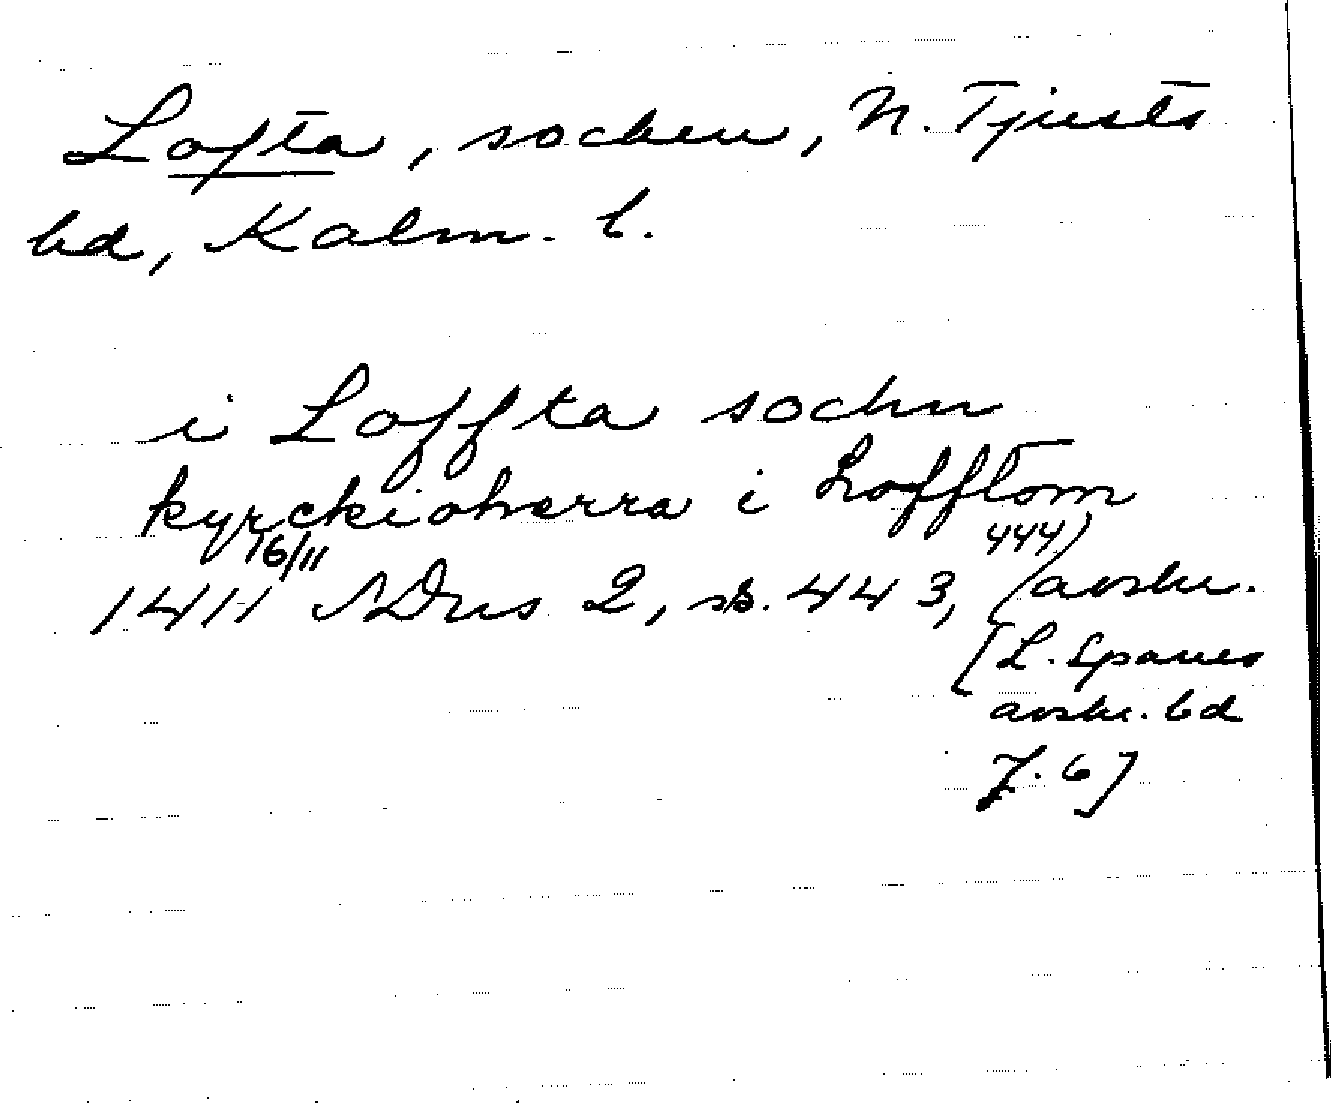 Lofta, socken, N. Tjusts
bd, Kalm. l.
i Loffta sochn
kyrckioherra i Lofftom
1411 16/11 SDns 2, sb. 443, 444) avskr.
[L. Spaues
avskr. bd
J. 6]